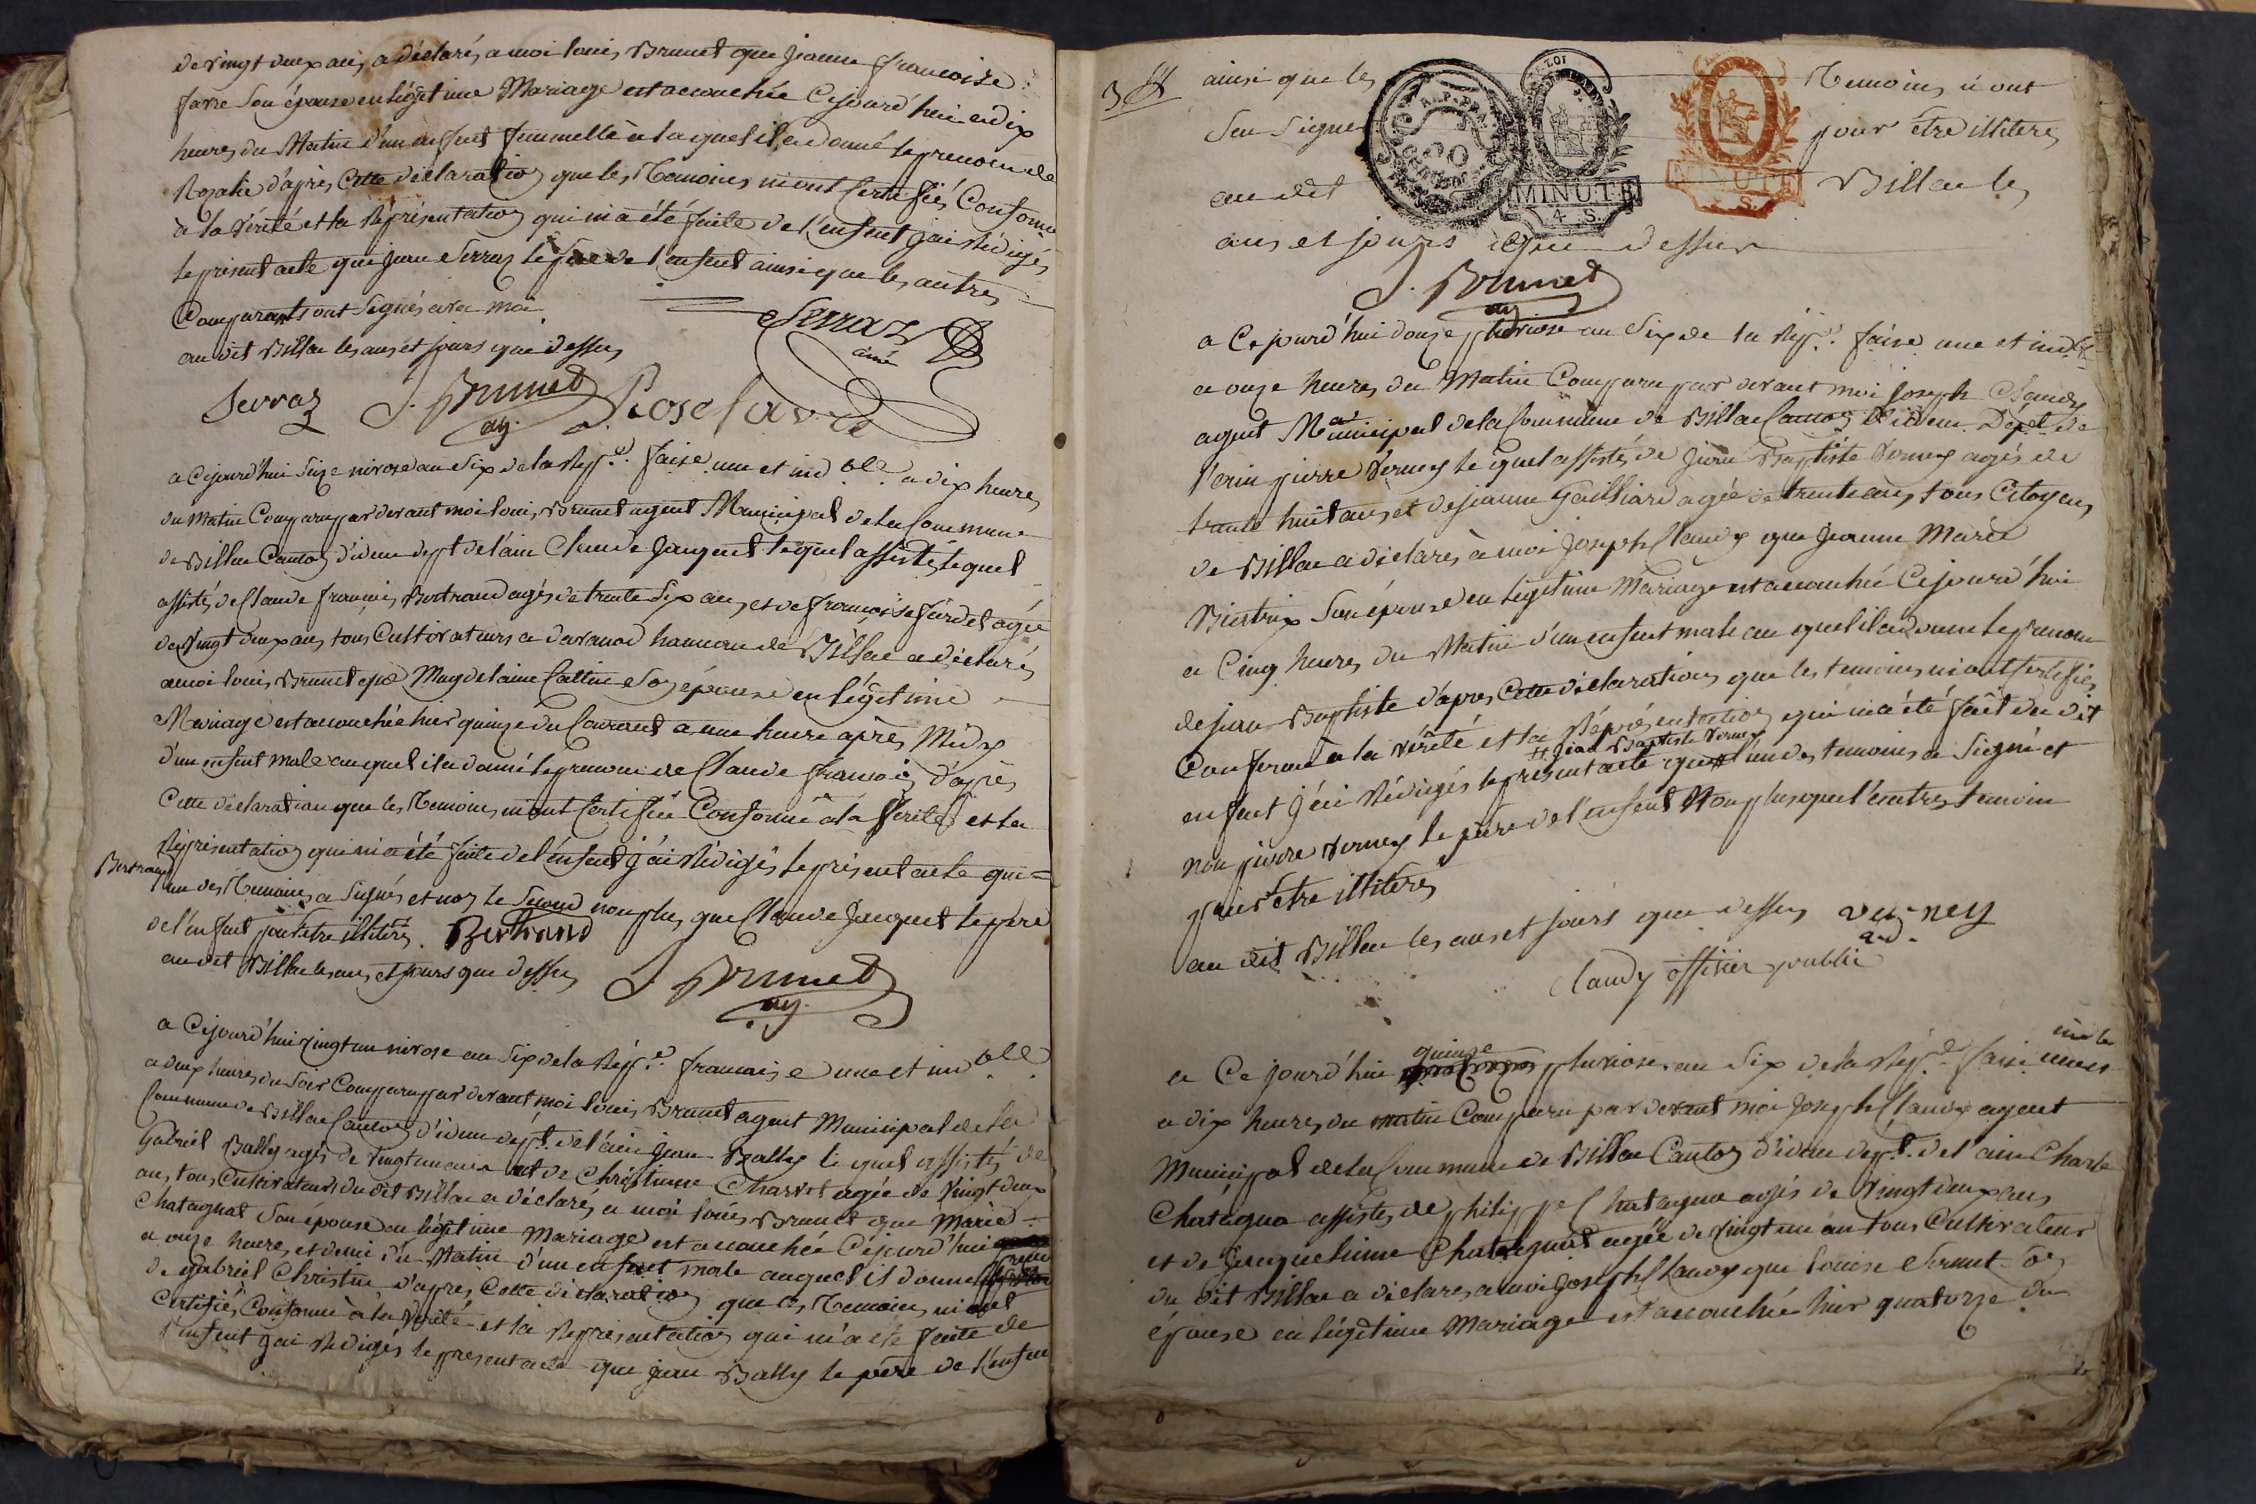 de vingt deux ans, a déclarés a moi louis Brunet que jeanne francoise
favre Son épouse en légitime Mariage est accouchée Cejourd'hui a dix
heures du Matin d'un enfent fummelle à la quel il a donné le prenom de
Rosalie d'après Cette déclaration que les Temoins m'ont Certifiés Conforme
à la vérité et la Répresentation qui m'a été faite de l'enfent j'ai Rédigés
le present acte que jean Serraz le père de l'enfent ainsi que les autres
Comparants ont Signés avec moi
au dit Billac les ans et jours que dessus
Serraz
ainé
Serraz J. Brunet Rose favre
ag.
a Cejourd'hui Seize nivose an Six de la Rep.e faise une et ind.ble a dix heures
du Matin Comparu par devant moi louis Brunet agent Municipal de la Commune
de Billac Canton d'idem dept de l'ain Claude Jacquet le quel assisté, le quel
assistés de Claude francois Bertrand agés de trente Six ans, et de francoise furdet agée
de vingt deux ans, tous Cultivateurs a hameau de Billac a déclarés
a moi louis Brunet que Magdelaine Cattin Son épouse en légitime
Mariage est accouchée hier quinze du Courant a une heure après Midy
d'un enfent male au quel il a donné le prenom de Claude francois d'après
Cette déclaration que les Temoins m'ont Certifiée Conforme à la Vérité et la
Répresentation qui m'a été faite de l'enfent j'ai Rédigés le présent acte que =
Bertrand
un des Temoins a Signés et non le Second non plus, que Claude Jacquet le père
de l'enfent pour être illiteres. Bertrand
au dit Billac les ans et jours que dessus
J. Brunet
ag.
a Cejourd'hui vingt un nivose an Six de la Rep.e francaise une et ind.ble
a deux heures du Soir Comparu par devant moi louis Brunet agent Municipal de la
Commune de Billac Canton d'idem dept. de l'ain jean Bally le quel assistés de
Gabriel Bally agés de vingt un ans et de Christinne Charvet agée de vingt deux
ans, tous Cultivateurs du dit Billac a déclarés a moi louis Brunet que Marie
Chatagnat Son épouse en légitime Mariage est accouchée Cejourd'hui
a onze heures et demi du Matin d'un enfent male auquel il donne
de Gabriel Christin, d'apres Cette déclaration que les Temoins m'ont
Certifiés Conforme à la Vérité et la Représentation qui m'a été faite de
l'enfent j'ai Rédigés le present acte que jean Bally le père de l'enfent
3
ainsi que les Temoins n'ont
Seu Signer pour être illiteres
au dit Billac les
ans et jours que dessus
MINUTE
4. S.
MINUTE
S.
J. Brunet
ag
a Cejourd'hui douze pluviose an Six de la Rep.e faise une et ind.ble
a onze heures du Matin Comparu par devant moi joseph Claudy
agent Municipal de la Commune de Billac Canton d'idem Dépt. de
l'ain pierre verney le quel assistés de jean Baptiste verney agés de
trente huit ans et de jeanne Gailliard agée de trente ans, tous Citoyens
de Billac a déclarés à moi joseph Claudy que jeanne Marie
Bietrix Son épouse en légitime Mariage est accouchée Cejourd'hui
a Cinq heures du Matin d'un enfent male au quel il a donné le prenom
de jean Baptiste d'apres Cette déclaration que les temoins m'ont Certifiés
Conforme à la vérité et la Répresentation qui m'a été fait du dit
# jean Baptiste verney
enfent j'ai Rédigés le présent acte que # l'un des temoins a Signé et
non pierre verney le père de l'enfent Non plus que l'autres temoin
pour être illiteres
au dit Billac les ans et jours que dessus verney
Claudy offisier public
quinze
a Ce jourd'hui pluviose an Six de la Rép.e faise une
a dix heures du matin Comparu par devant moi Joseph Claudy agent
Municipal de la Commune de Billac Canton d'idem dept. de l'ain Charle
Chatagna assistés de philippe Chatagna agés de vingt deux ans
et de jacquelinne Chatagnat agée de vingt un an tous Cultivateur
du dit Billac a déclarés, a moi Joseph Claudy que louise Son
épouse en légitime Mariage est accouchée hier quatorze du